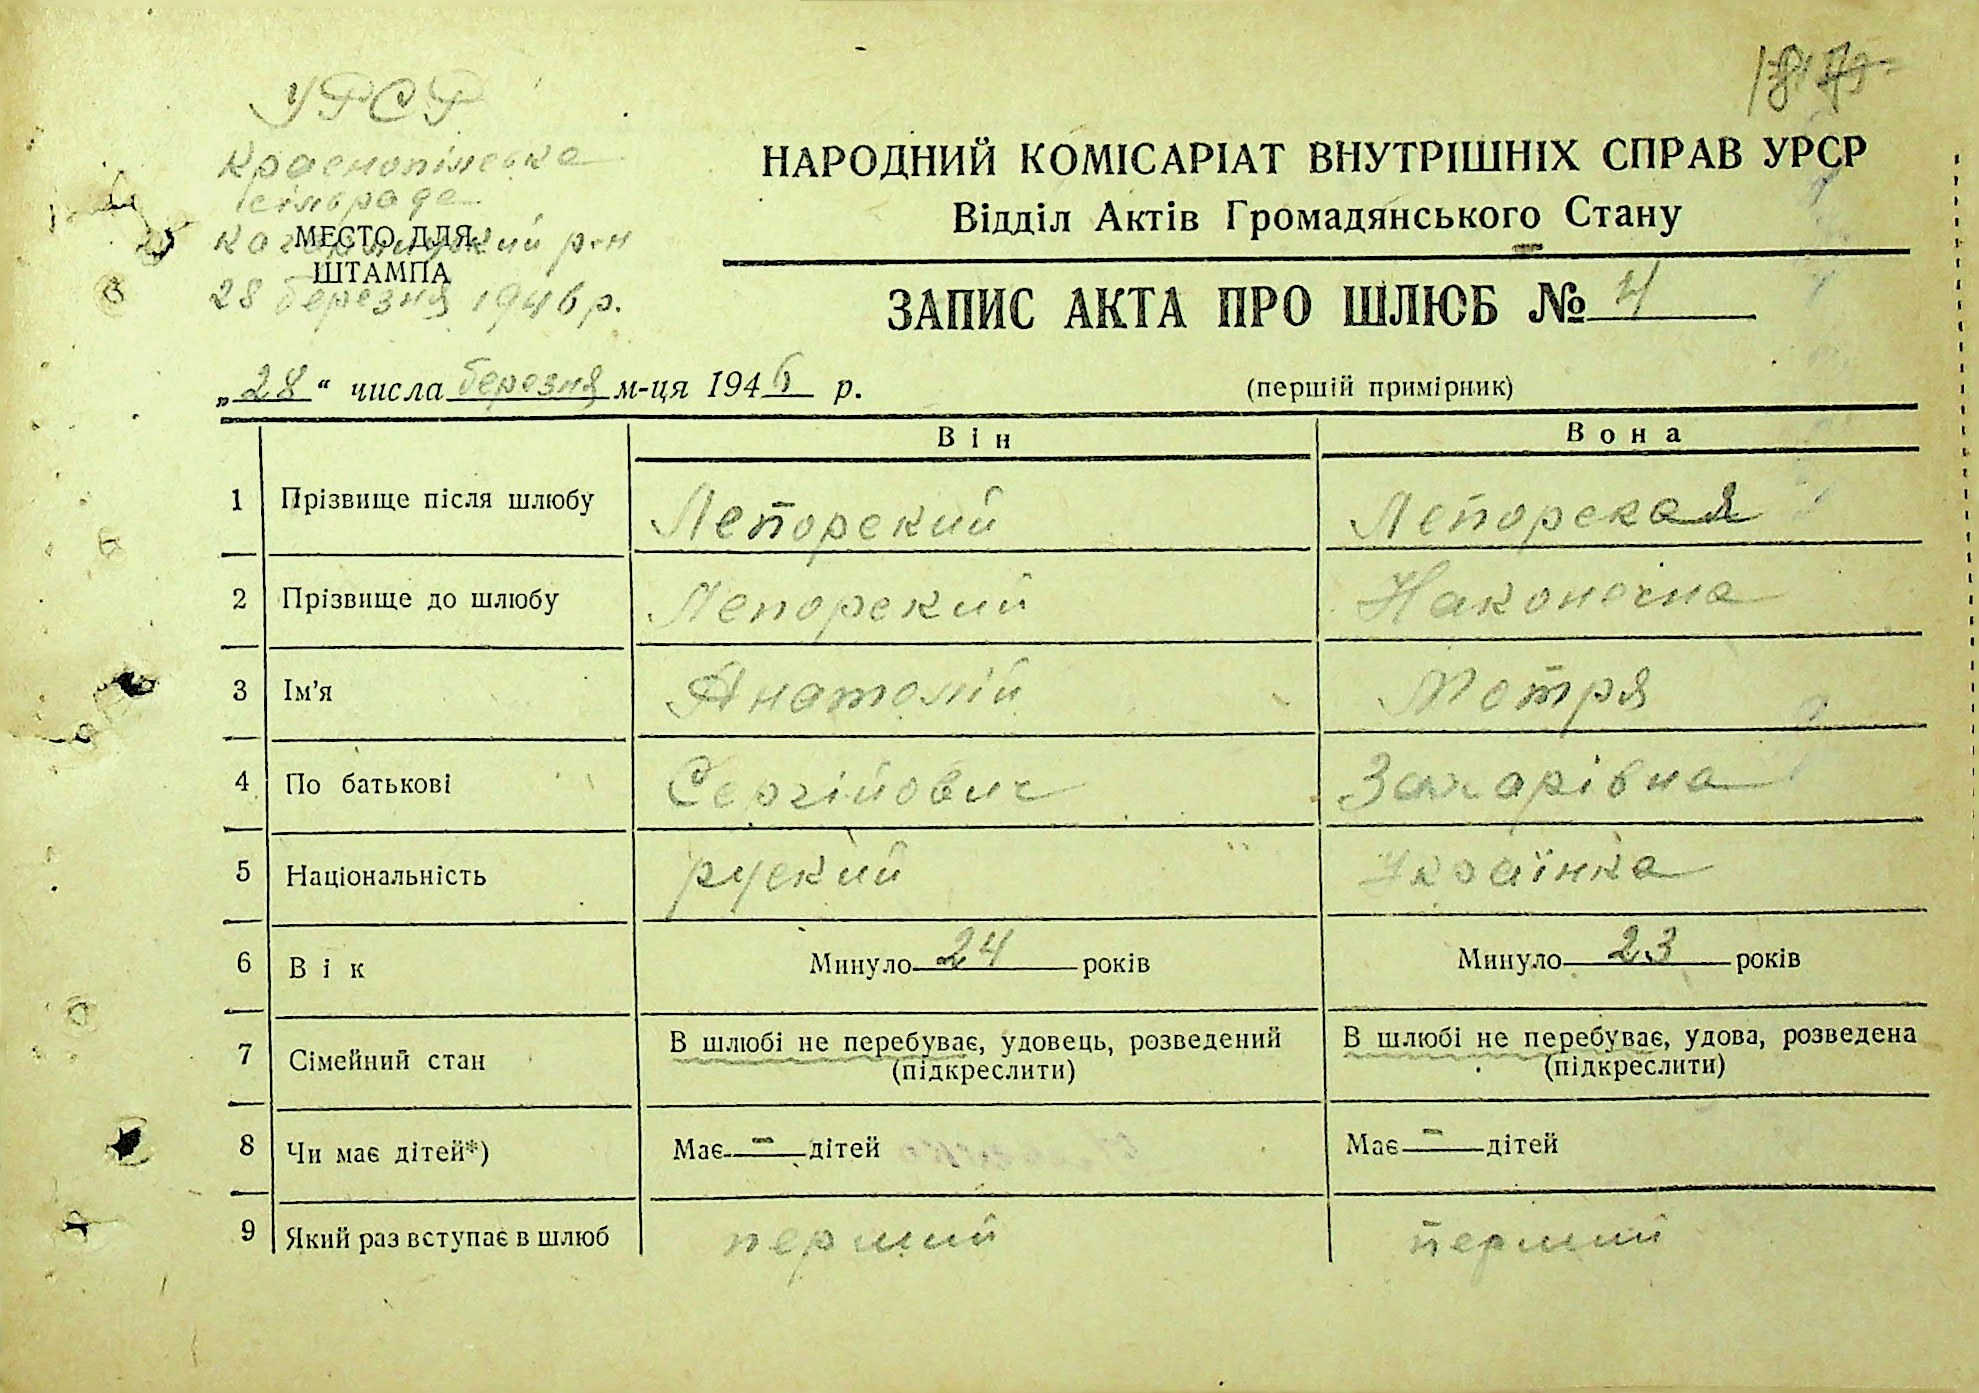 УРСР
Краснопільська
сільрада
МЕСТО ДЛЯ
ШТАМПА
р-н
28 березня 1946 р.
НАРОДНИЙ КОМІСАРІАТ ВНУТРІШНІХ СПРАВ УРСР
Відділ Актів Громадянського Стану
ЗАПИС АКТА ПРО ШЛЮБ № 4
„28“ числа березня м-ця 1946 р.
(першій примірник)
Він Вона
1 Прізвище після шлюбу Лепорский Лепорская
2 Прізвище до шлюбу Лепорский Наконечна
3 Ім'я Анатолій Мотря
4 По батькові Сергійович Захарівна
5 Національність руский Українка
6 Вік Минуло 24 років Минуло 23 років
7 Сімейний стан В шлюбі не перебуває, удовець, розведений В шлюбі не перебуває, удова, розведена
(підкреслити) (підкреслити)
8 Чи має дітей*) Має — дітей Має — дітей
9 Який раз вступає в шлюб перший перший